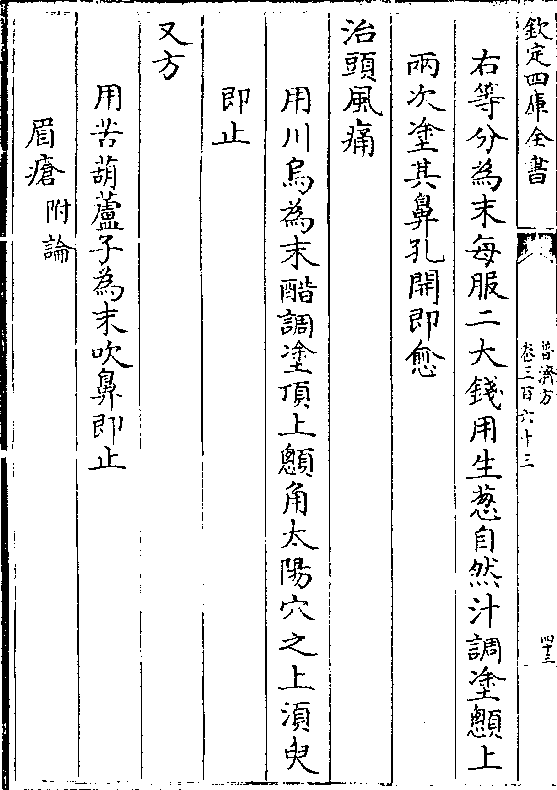 欽定四庫全書
普濟方
卷三百六十三
四十三
右等分為末每服二大錢用生葱自然汁調塗顖上
兩次塗其鼻孔開即愈
治頭風痛
用川烏為末醋調塗頂上顖角太陽穴之上須臾
即止
又方
用苦葫蘆子為末吹鼻即止
眉瘡附論